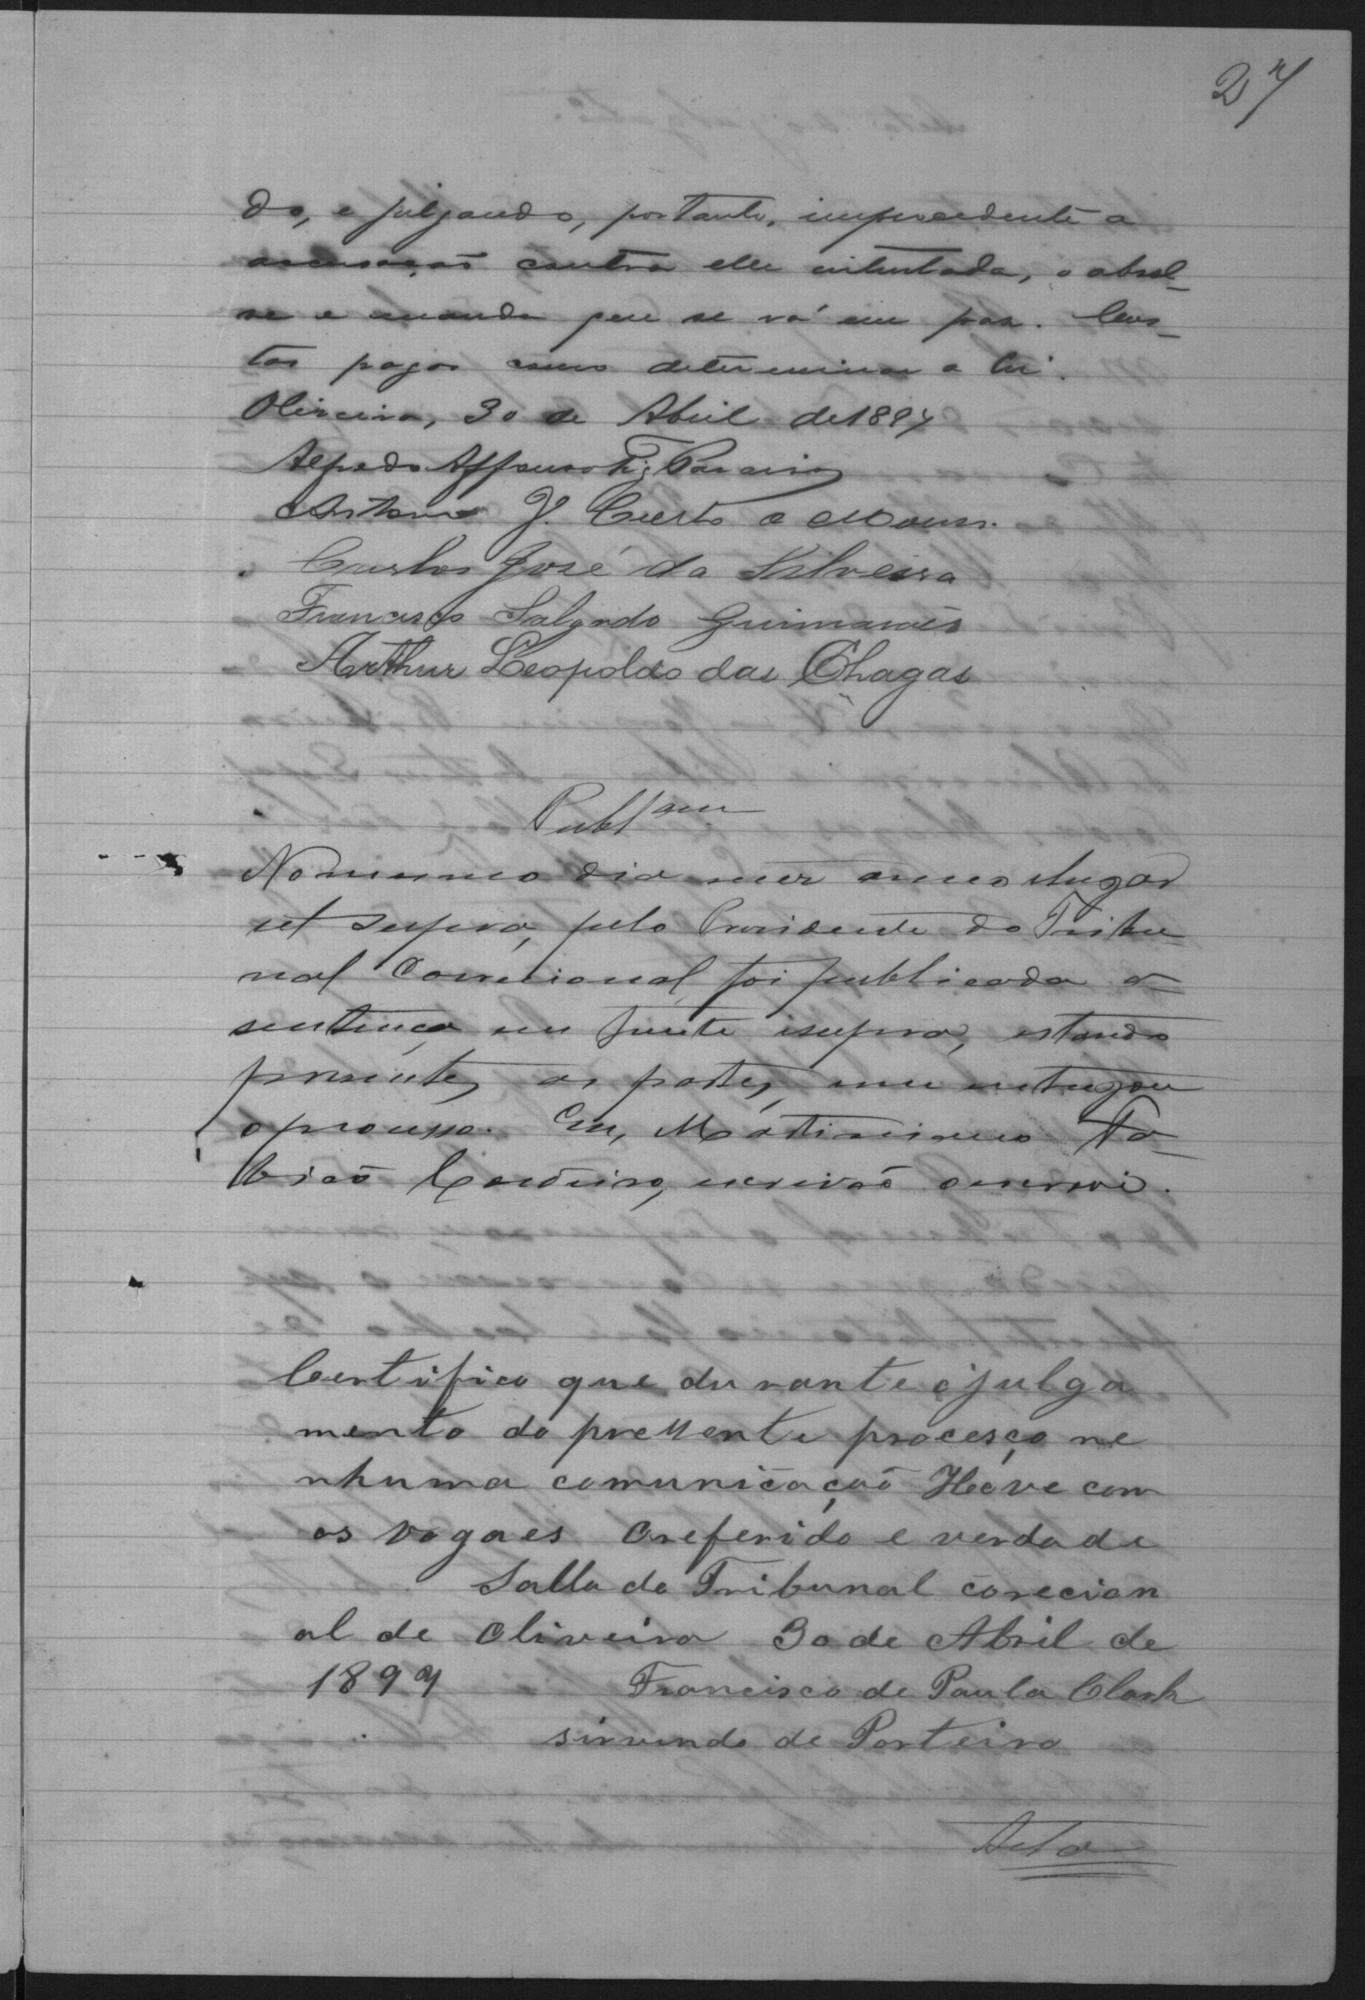 27
do, e julgando, portanto, improcedente a
accusação contra elle intentada, o absol-
ve e manda que se vá em paz. Cus-
tas pagas como determina a lei.
Oliveira, 30 de Abril de 1897
Alfredo Affonso
Antonio J. e Moura.
Carlos José da Silveira
Francisco Salgado Guimarães
Arthur Leopoldo das Chagas
Publ.am
No mesmo dia mez anno e lugar
ut supra, pelo Presidente do Tribu
nal Correcional foi publicada a
sentença em frente e supra, estando
presentes as partes, me entregou
o processo. Eu, Martiniano Fa-
bião Cordeiro, escrivão o escrevi.
Certifico que durante o julga
mento do pressente procesço ne
nhuma comunicação Hove com
os vogaes O referido e verdade
Salla do Tribunal corecion
al de Oliveira 30 de Abril de
1897 Francisco de Paula Clark
sirvindo de Porteiro
Acta